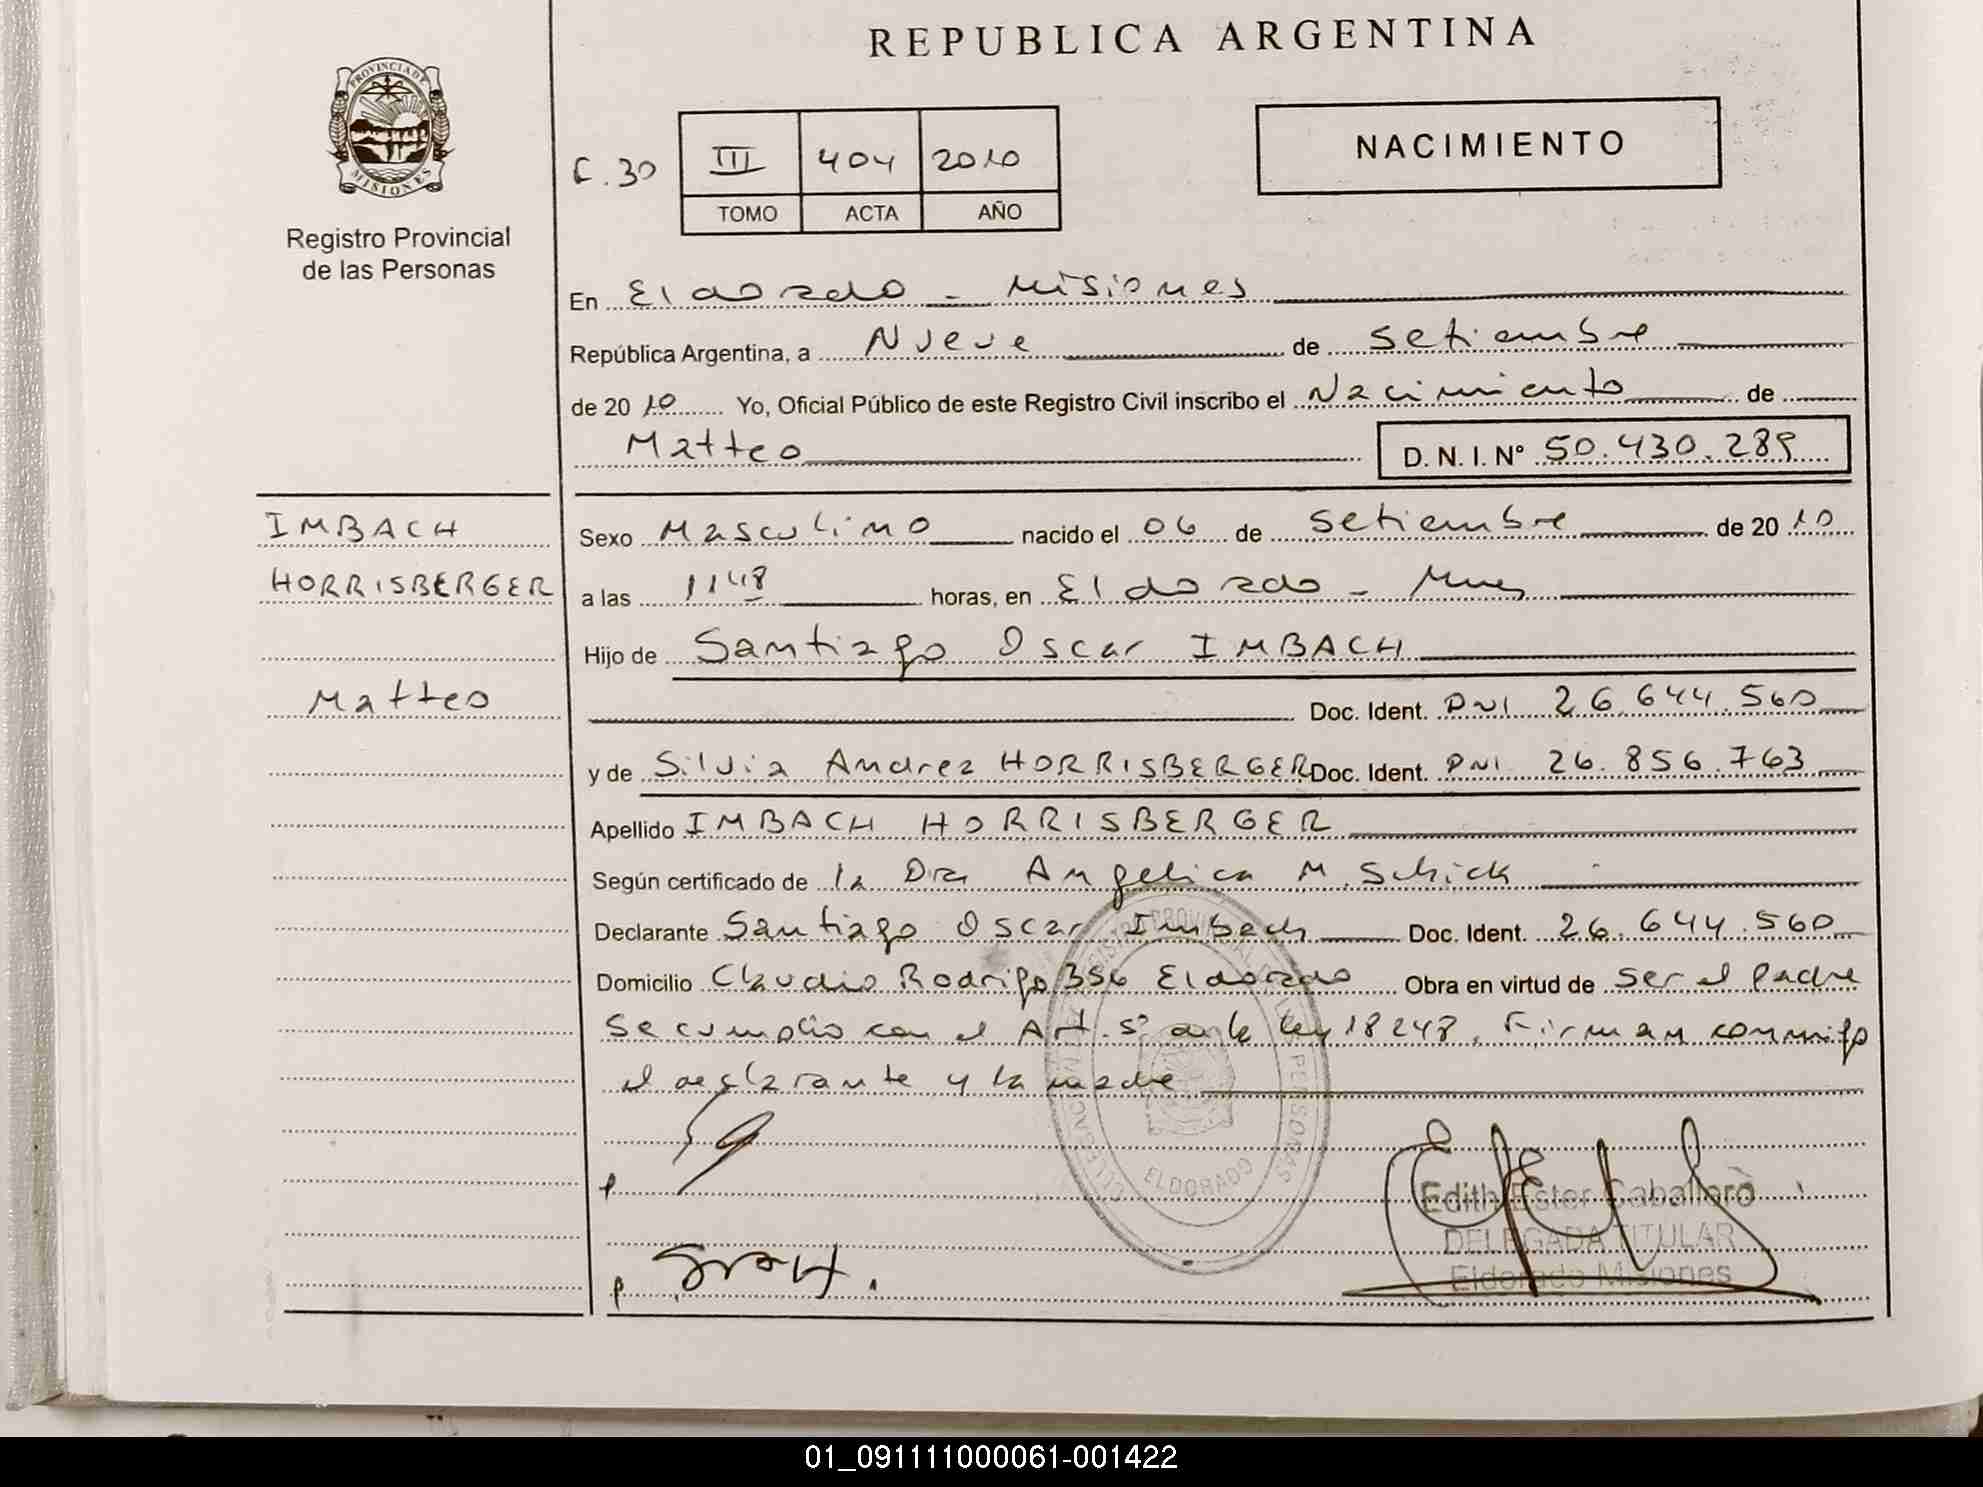 REPUBLICA ARGENTINA
PROVINCIA DE
MISIONES
Registro Provincial
de las Personas
NACIMIENTO
C.30 III 404 2010
TOMO ACTA AÑO
En Eldorado - Misiones
República Argentina, a Nueve de Setiembre
de 2010 Yo, Oficial Público de este Registro Civil inscribo el Nacimiento de
Matteo D. N. I. Nº 50.430.289
IMBACH
HORRISBERGER
Matteo
Sexo Masculino nacido el 06 de Setiembre de 2010
a las 1148 horas, en Eldorado - Mnes
Hijo de Santiago Oscar IMBACH
Doc. Ident. DNI 26.644.560
y de Silvia Andrea HORRISBERGER Doc. Ident. DNI 26.856.763
Apellido IMBACH HORRISBERGER
Según certificado de la Dra Angelica M. Schick
Declarante Santiago Oscar Imbach Doc. Ident. 26.644.560
Domicilio Claudio Rodrigo 356 Eldorado Obra en virtud de ser el Padre
Se cumplio con el Art. 5º de la Ley 18248. Firman conmigo
el declarante y la madre
ELDORADO
Edith Ester Caballero
DELEGADA TITULAR
Eldorado Misiones
01_091111000061-001422